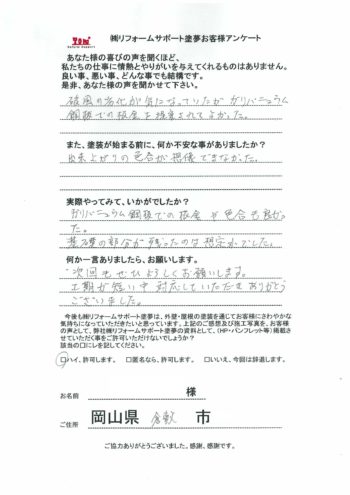 ㈱リフォームサポート塗夢お客様アンケート
あなた様の喜びの声を聞くほど、
私たちの仕事に情熱とやりがいを与えてくれるものはありません。
良い事、悪い事、どんな事でも結構です。
是非、あなた様の声を聞かせて下さい。
破風の劣化が気になっていたが ガリバニュウム
鋼板での板金を提案されてよかった。
また、塗装が始まる前に、何か不安な事がありましたか?
出来上がりの色合が想像できなかった。
実際やってみて、いかがでしたか?
ガリバニュウム鋼板での板金が色合も良かっ
た。
基礎の部分が残ったのは想定外でした。
何か一言ありましたら、お願いします。
次回もぜひよろしくお願いします。
工期が短い中 対応していただきありがとう
ございました。
今後も㈱リフォームサポート塗夢は、外壁・屋根の塗装を通じてお客様にさわやかな
気持ちになっていただきたいと思っています。上記のご感想及び施工写真を、お客様
の声として、弊社㈱リフォームサポート塗夢の資料として、(HP・パンフレット等)掲載さ
せていただく事をご許可いただけないでしょうか?
該当の口にレを記してください。
☑ハイ、許可します。 口匿名なら、許可します。 口いいえ、今回は辞退します。
お名前 様
ご住所 岡山県 倉敷 市
ご協力ありがとうございました。感謝、感謝です。